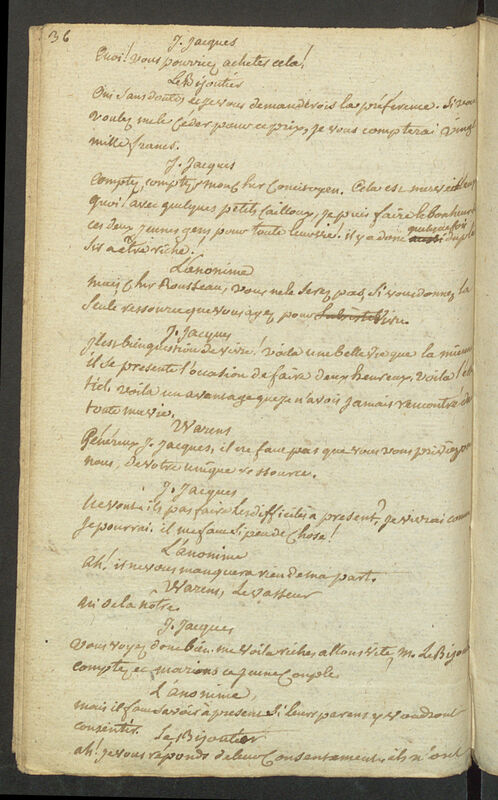 36
J. Jacques
Quoi! vous pourriez acheter cela!
Le Bijoutier
Oui sans doute, et je vous demanderois la préférence. Si vous
voulez me le ceder pour ce prix, je vous compterai vingt
mille francs.
J. Jacques
Comptez, comptez, mon cher Concitoyen. Cela est merveilleux
quoi! avec quelques petits cailloux, je puis faire le bonheur de
ces deux jeunes gens pour toute leur vie! il y a donc quelque fois du
plaisir a être riche.
L'anonime
mais cher Rousseau, vous ne le serez pas, si vous donnez la
seule ressource que vous ayez pour subsister vivre.
J. Jacques
il est bien question de vivre! voila une belle vie que la mienne
il se presente l'occasion de faire deux heureux, voila l'
voila un avantage que je n'avois jamais rencontré de
toute ma vie.
Warens
Généreux J. Jacques, il ne faut pas que vous vous priviez pour
nous, de votre unique ressource.
J. Jacques
Ne vont-ils pas faire les difficiles a present? je vivrai comme
je pourrai. il me faut si peu de chose!
L'anonime
ah! il ne vous manquera rien de ma part.
Warens, Le vasseur
ni de la nôtre.
J. Jacques
vous voyez donc bien. me voila riche, allons vite, M. Le Bijoutier
comptez et marions ce jeune Couple
L'anonime,
mais il faut savoir à present si leurs parens y voudront
consentir.
Le Bijoutier
ah! je vous réponds de leur Consentement. ils n'ont